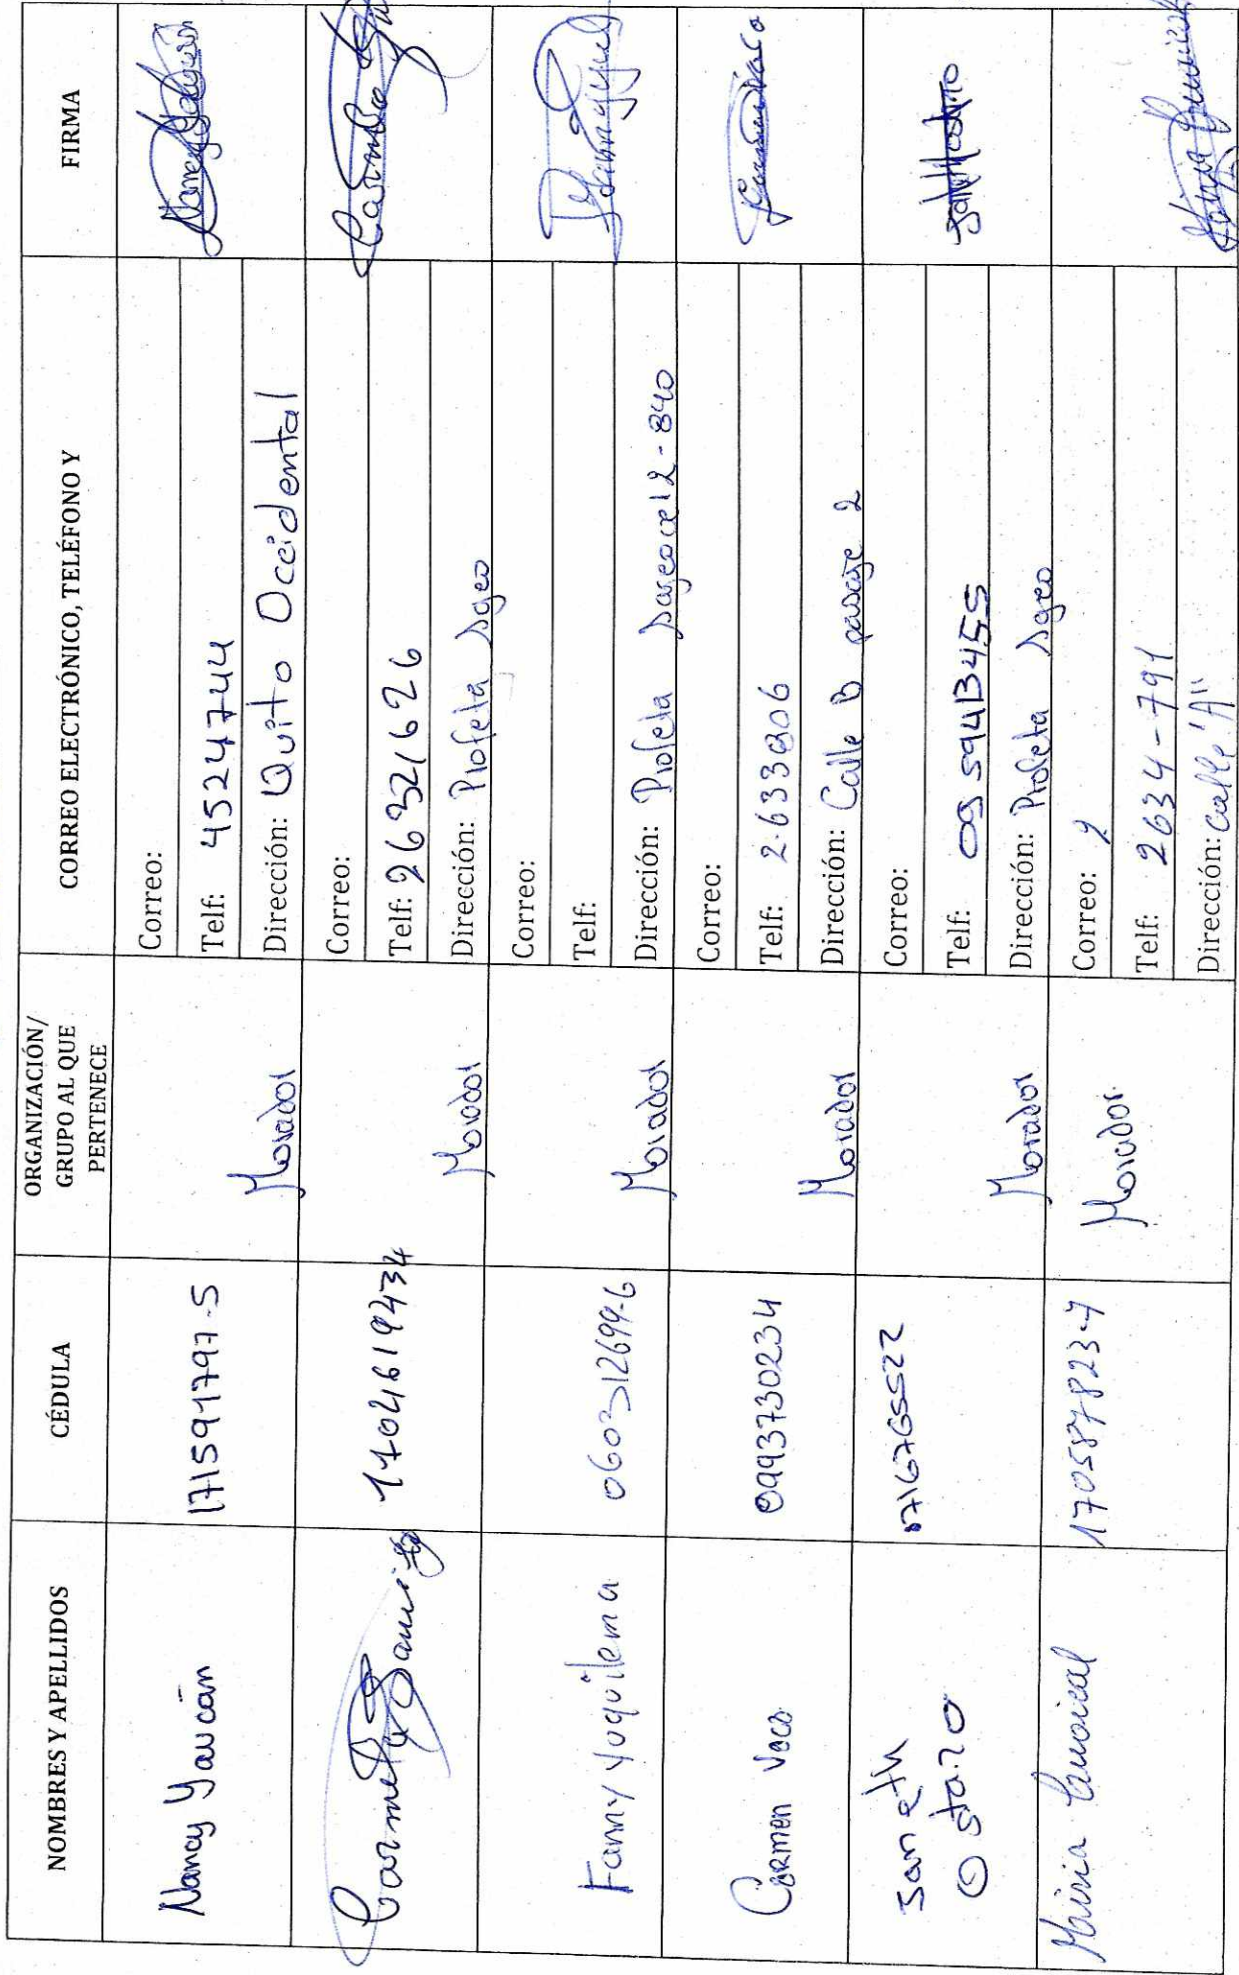 NOMBRES Y APELLIDOS
CÉDULA
ORGANIZACIÓN/
GRUPO AL QUE
PERTENECE
CORREO ELECTRÓNICO, TELÉFONO Y
FIRMA
Nancy Yaucán
171591797-5
Morador
Correo:
Telf: 4524744
Dirección: Quito Occidental
1704619434
Morador
Correo:
Telf: 26321626
Dirección: Profeta Ageo
Fanny Yuquilema
060312699-6
Morador
Correo:
Telf:
Dirección: Profeta
Carmen Vaca
0993730234
Morador
Correo:
Telf: 2633806
Dirección: Calle B pasaje 2
Janeth
Ostaizo
Morador
Correo:
Telf: 0959413455
Dirección: Profeta Ageo
María
170587823-7
Morador
Correo:
Telf: 2634-791
Dirección: Calle "A"